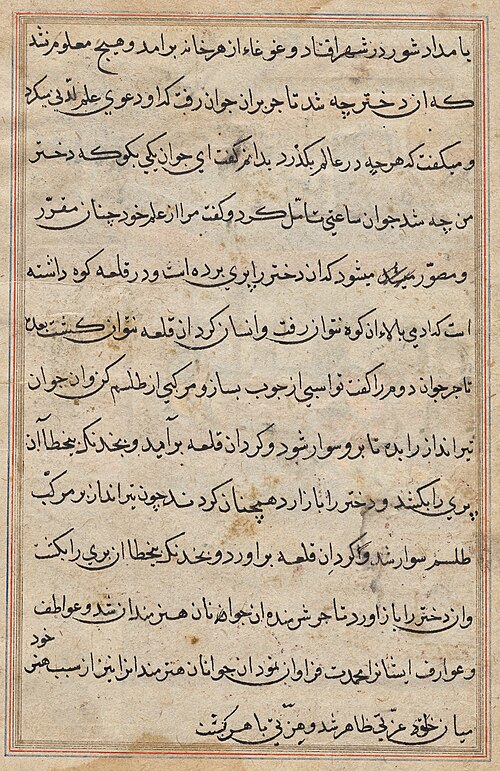 بامداد شور در شهر افتاد و غوغاء از هر خانه برامد و هیچ معلوم نشد
که ان دختر چه شد تاجر بران جوان رفت که او دعوی علم لدنی میکرد
و میگفت که هر چه در عالم بگذرد بدانم گفت ای جوان یکی بکو که دختر
من چه شد جوان ساعتی تامل کرد و گفت مرا از علم خود چنان مقرر
و مصور میشود که ان دختر را پری برده است و در قلعه کوه داشته
است که ادمی بالاء ان کوه نتوان رفت و انسان کرد ان قلعه نتوان کشت بعده
تاجر جوان دوم را گفت تو اسبی از چوب بساز و مرکبی از طلسم کن وان جوان
تیرانداز را بده تا برو سوار شود و کرد ان قلعه برآید و بخدنک بیخطا آن
پری را بکشد و دختر را باز ارد همچنان کردند چون تیرانداز بر مرکب
طلسم سوار شد و کرد ان قلعه براورد و بخدنک بیخطا ان پری را بکشت
وان دختر را باز اورد تاجر شرمنده ان جوانان هنرمند ان شد و عواطف
و عوارف ایشانرا محمدت فراوان نمود ان جوانان هنرمند انرا نیز از سبب هنر خود
میان خلق عزتی ظاهر شد و هر یکی با هر کشت